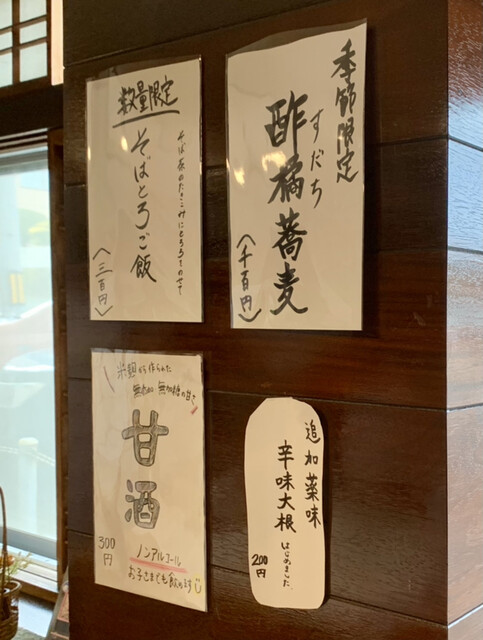 季節限定
すだち
酢橘蕎麦
（千百円）
数量限定
そば茶のたきこみにとろろをのせて
そばとろご飯
（三百円）
米麹から作られた
無添加 無加糖の甘さ
甘酒
300円
ノンアルコール
お子さまでも飲めます
追加薬味
辛味大根はじめました
200円